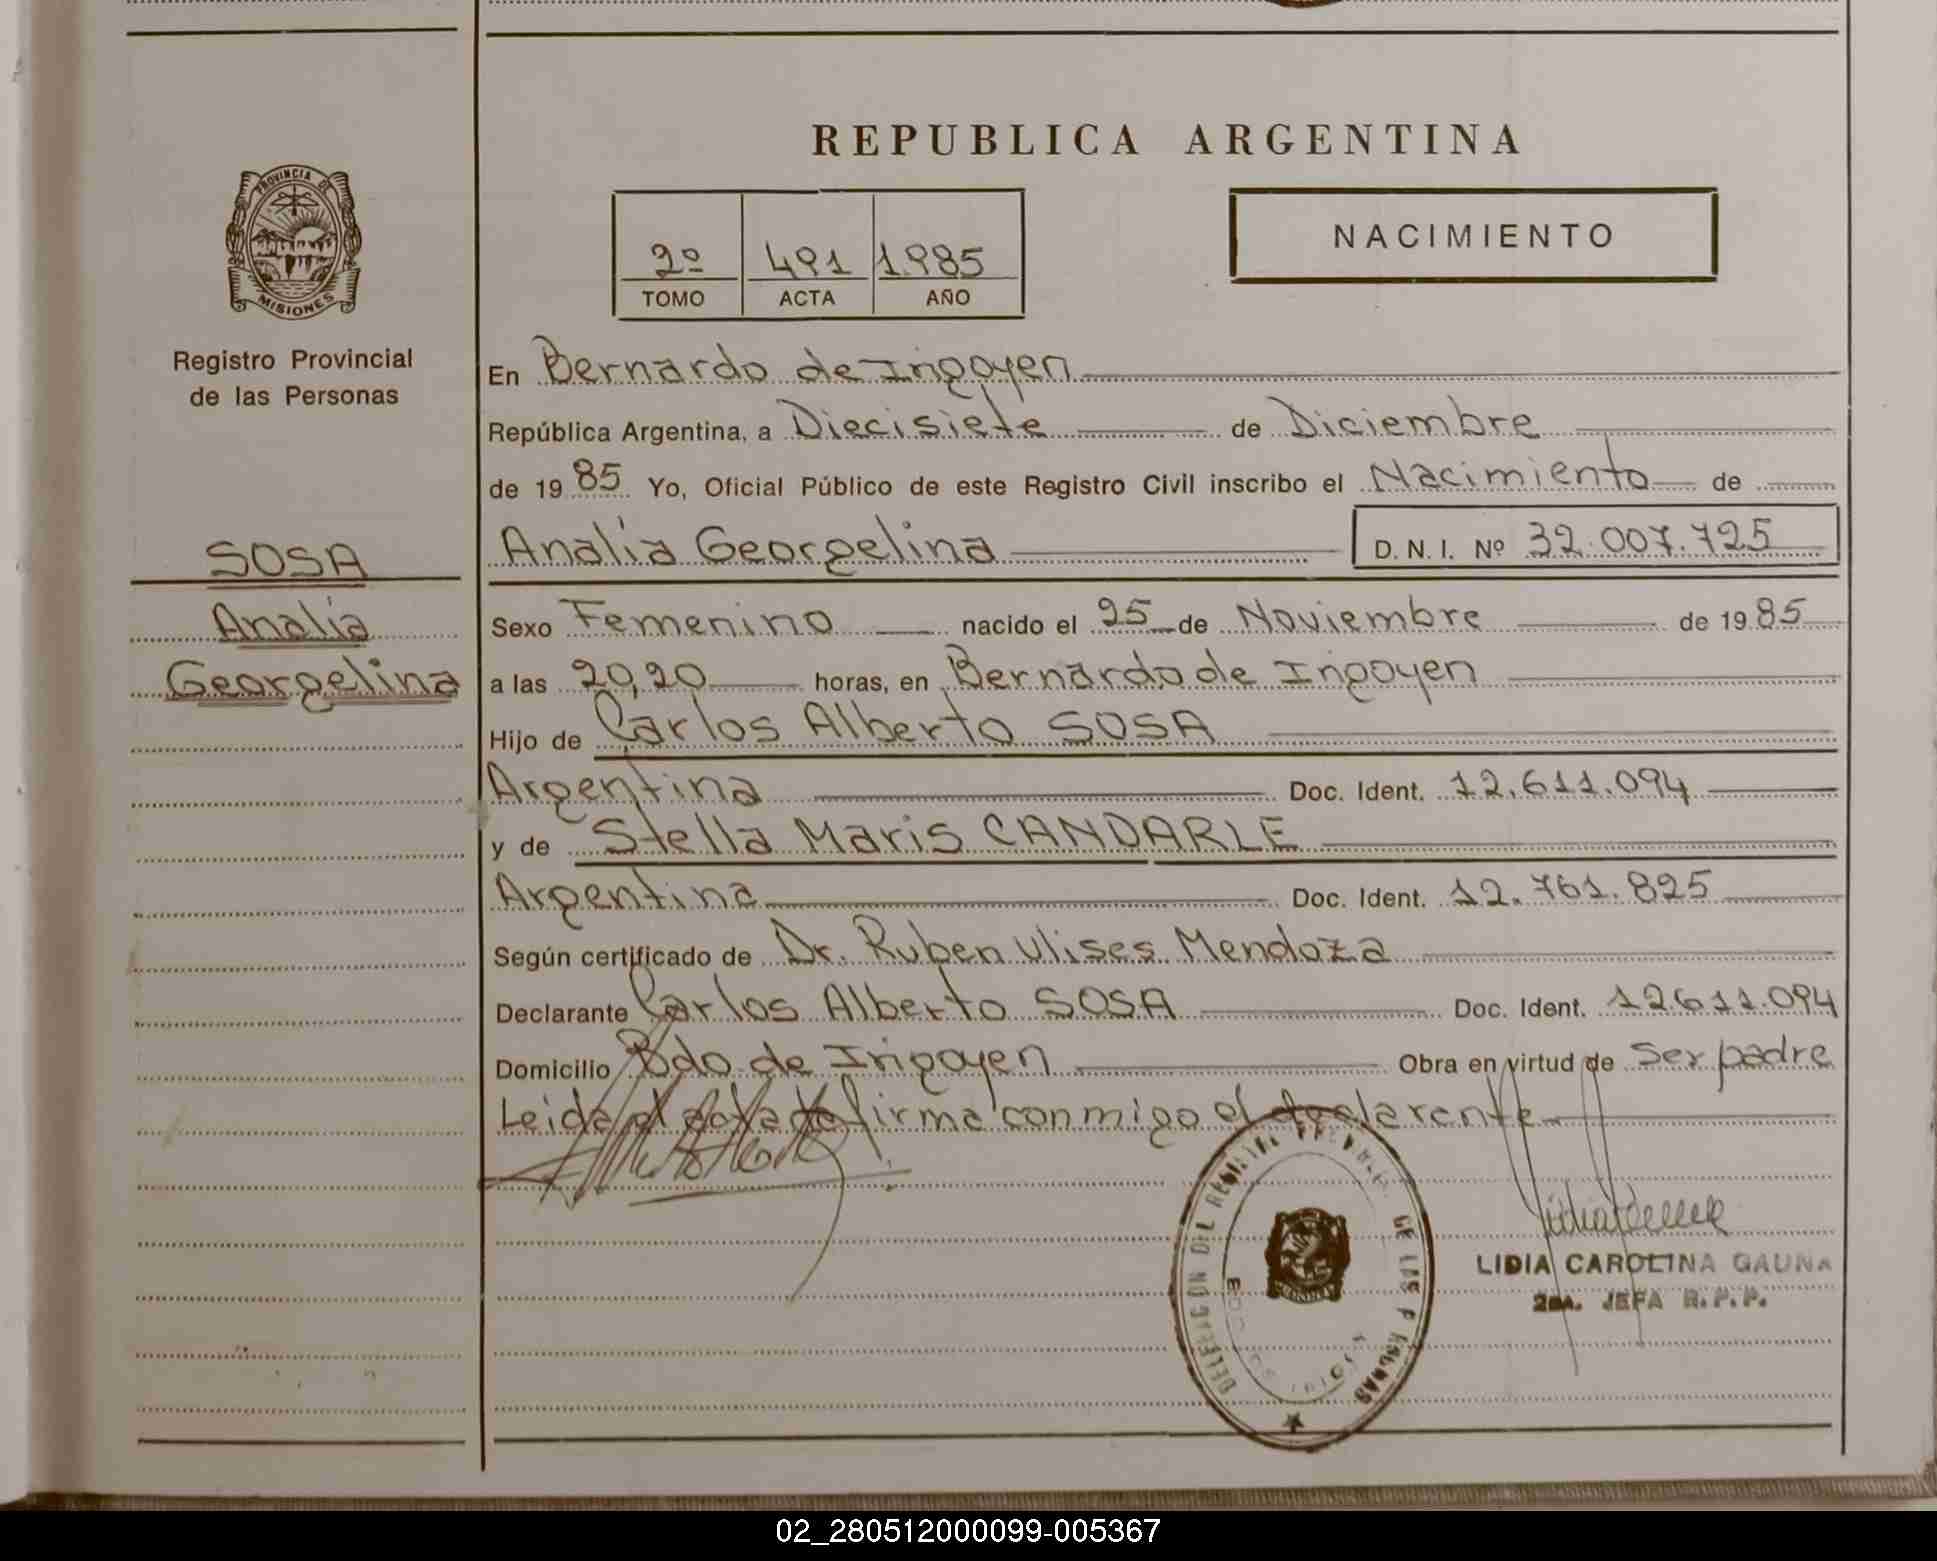 REPUBLICA ARGENTINA
PROVINCIA DE
MISIONES
Registro Provincial
de las Personas
2º 491 1985
TOMO ACTA AÑO
NACIMIENTO
En Bernardo de Irigoyen
República Argentina, a Diecisiete de Diciembre
de 1985 Yo, Oficial Público de este Registro Civil inscribo el Nacimiento de
Analía Georgelina D.N.I. Nº 32.007.725
SOSA
Analía
Georgelina
Sexo Femenino nacido el 25 de Noviembre de 1985
a las 20,20 horas, en Bernardo de Irigoyen
Hijo de Carlos Alberto SOSA
Argentina Doc. Ident. 12.611.094
y de Stella Maris CANDARLE
Argentina Doc. Ident. 12.761.825
Según certificado de Dr. Ruben Ulises Mendoza
Declarante Carlos Alberto SOSA Doc. Ident. 12.611.094
Domicilio Bdo de Irigoyen Obra en virtud de ser padre
Leida el acta firma conmigo el declarente
DELEGACION DEL REGISTRO DE LAS PERSONAS
LIDIA CAROLINA GAUNA
2da. JEFA R.P.P.
02_280512000099-005367